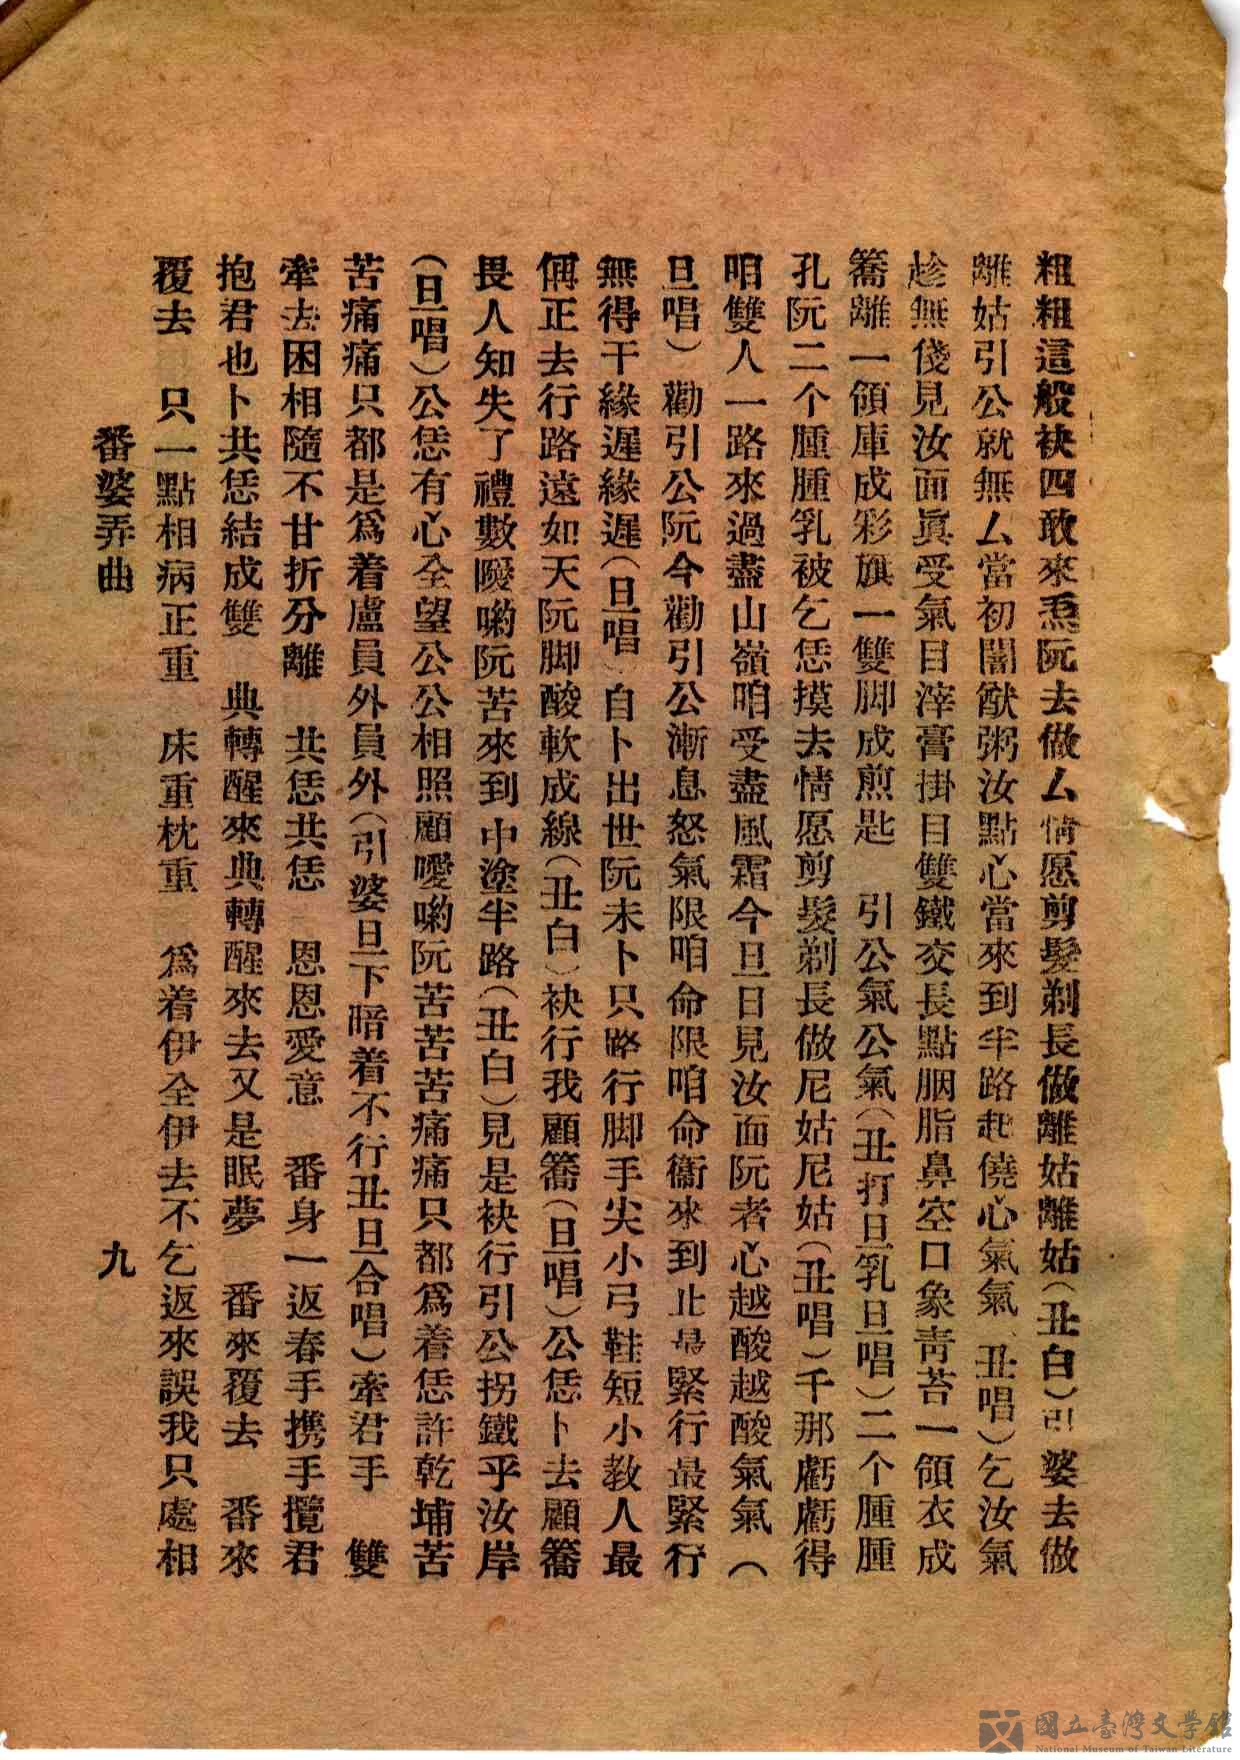 粗粗這般袂四敢來炁阮去做厶情愿剪髮剃長做離姑離姑（丑白）引婆去做
離姑引公就無厶當初闇猷粥汝點心當來到半路起僥心氣氣（丑唱）乞汝氣
趁無俴見汝面眞受氣目滓膏掛目雙鐵交長點胭脂鼻空口象靑苔一領衣成
簥離一領庫成彩旗一雙脚成煎匙　引公氣公氣（丑打旦乳旦唱）二个腫腫
孔阮二个腫腫乳被乞恁摸去情愿剪髮剃長做尼姑尼姑（丑唱）千那虧虧得
咱雙人一路來過盡山嶺咱受盡風霜今旦日見汝面阮者心越酸越酸氣氣（
旦唱）勸引公阮今勸引公漸息怒氣限咱命限咱命衞來到止最緊行最緊行
無得干緣遲緣遲（旦唱）自卜出世阮未卜只路行脚手尖小弓鞋短小教人最
𠆧正去行路遠如天阮脚酸軟成線（丑白）袂行我顧簥（旦唱）公恁卜去顧簥
畏人知失了禮數噯喲阮苦來到中塗半路（丑白）見是袂行引公拐鐵乎汝岸
（旦唱）公恁有心全望公公相照顧噯喲阮苦苦苦痛痛只都爲着恁許乾埔苦
苦痛痛只都是爲着盧員外員外（引婆旦下暗着不行丑旦合唱）牽君手　雙
牽去困相隨不甘折分離　共恁共恁　恩恩愛意　番身一返春手携手攬君
抱君也卜共恁結成雙　典轉醒來典轉醒來去又是眠夢　番來覆去　番來
覆去　只一點相病正重　床重枕重　爲着伊仝伊去不乞返來誤我只處相
番婆弄曲
九
國立臺灣文學館
National Museum of Taiwan Literature